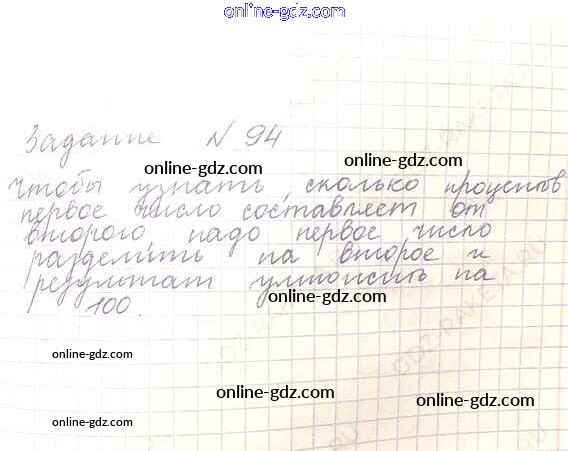 online-gdz.com
Задание N 94
online-gdz.com online-gdz.com
Чтобы узнать, сколько процентов
первое число составляет от
второго надо первое число
разделить на второе и
результат умножить на
online-gdz.com
100.
online-gdz.com
online-gdz.com
online-gdz.com
online-gdz.com